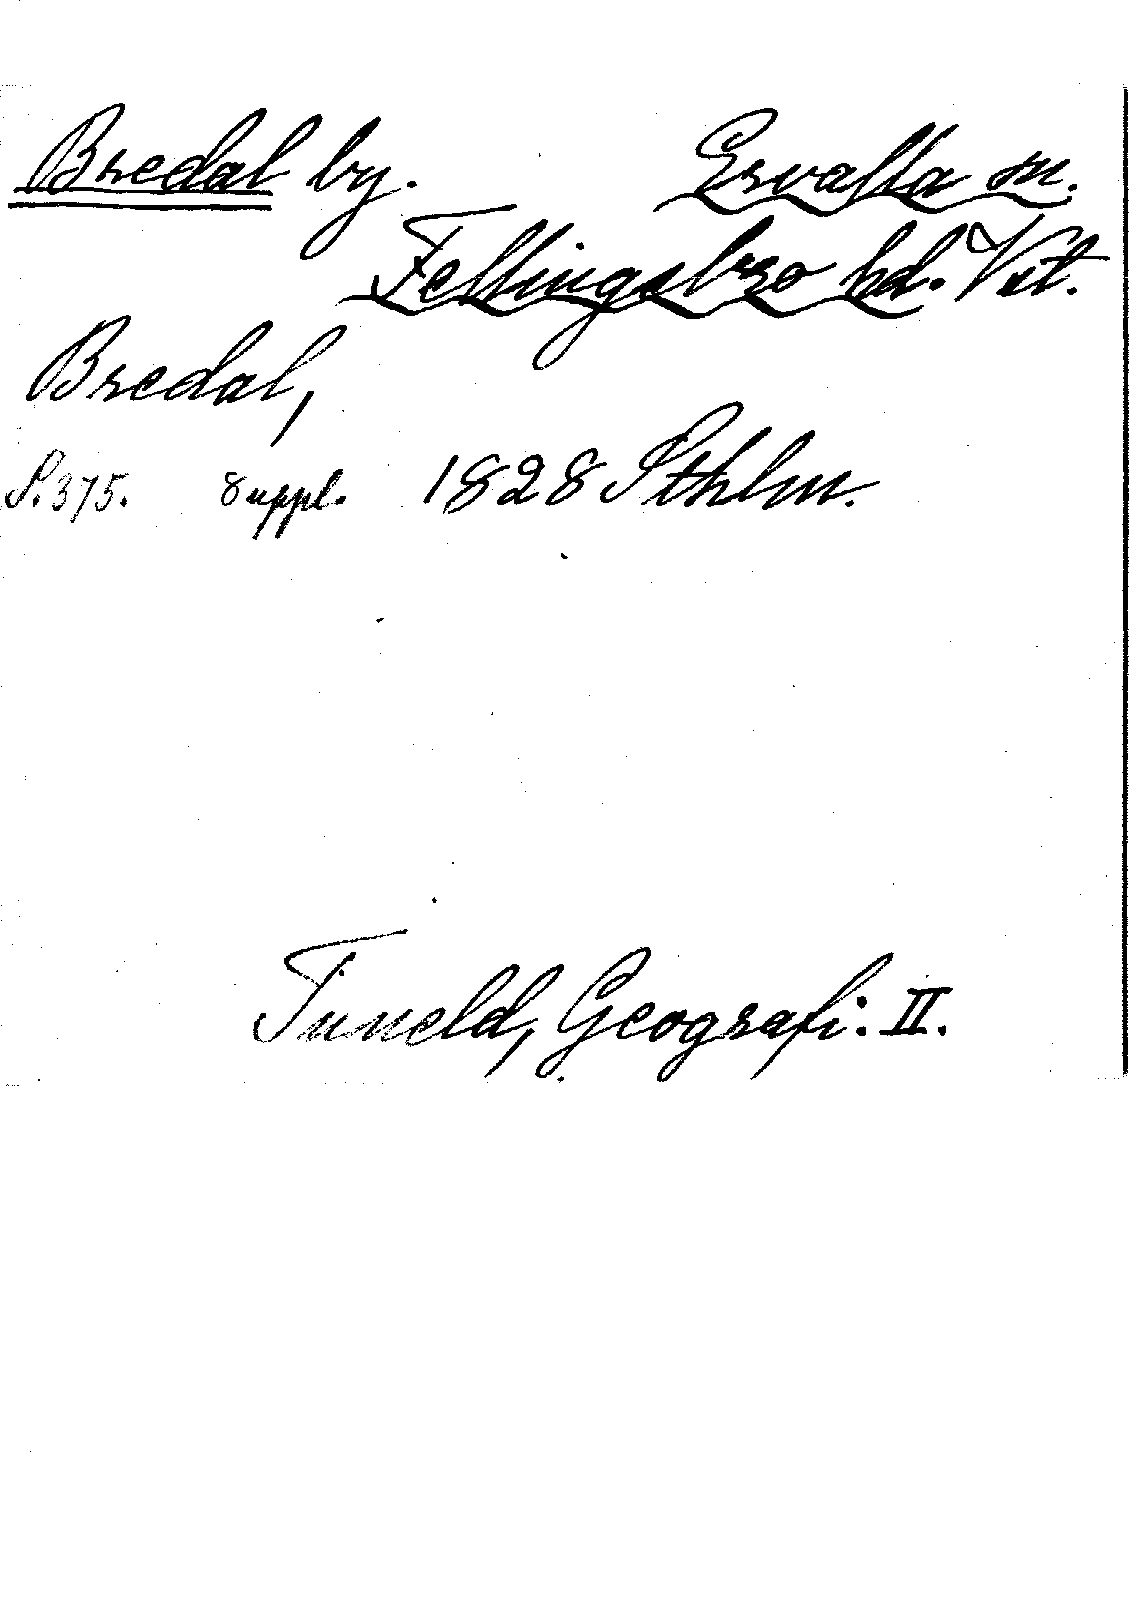 Bredal by. Ervalla sn.
Fellingsbro hd. Vstm.
Bredal,
S. 375. Suppl. 1828 Sthlm.
Tuneld, Geografi. II.